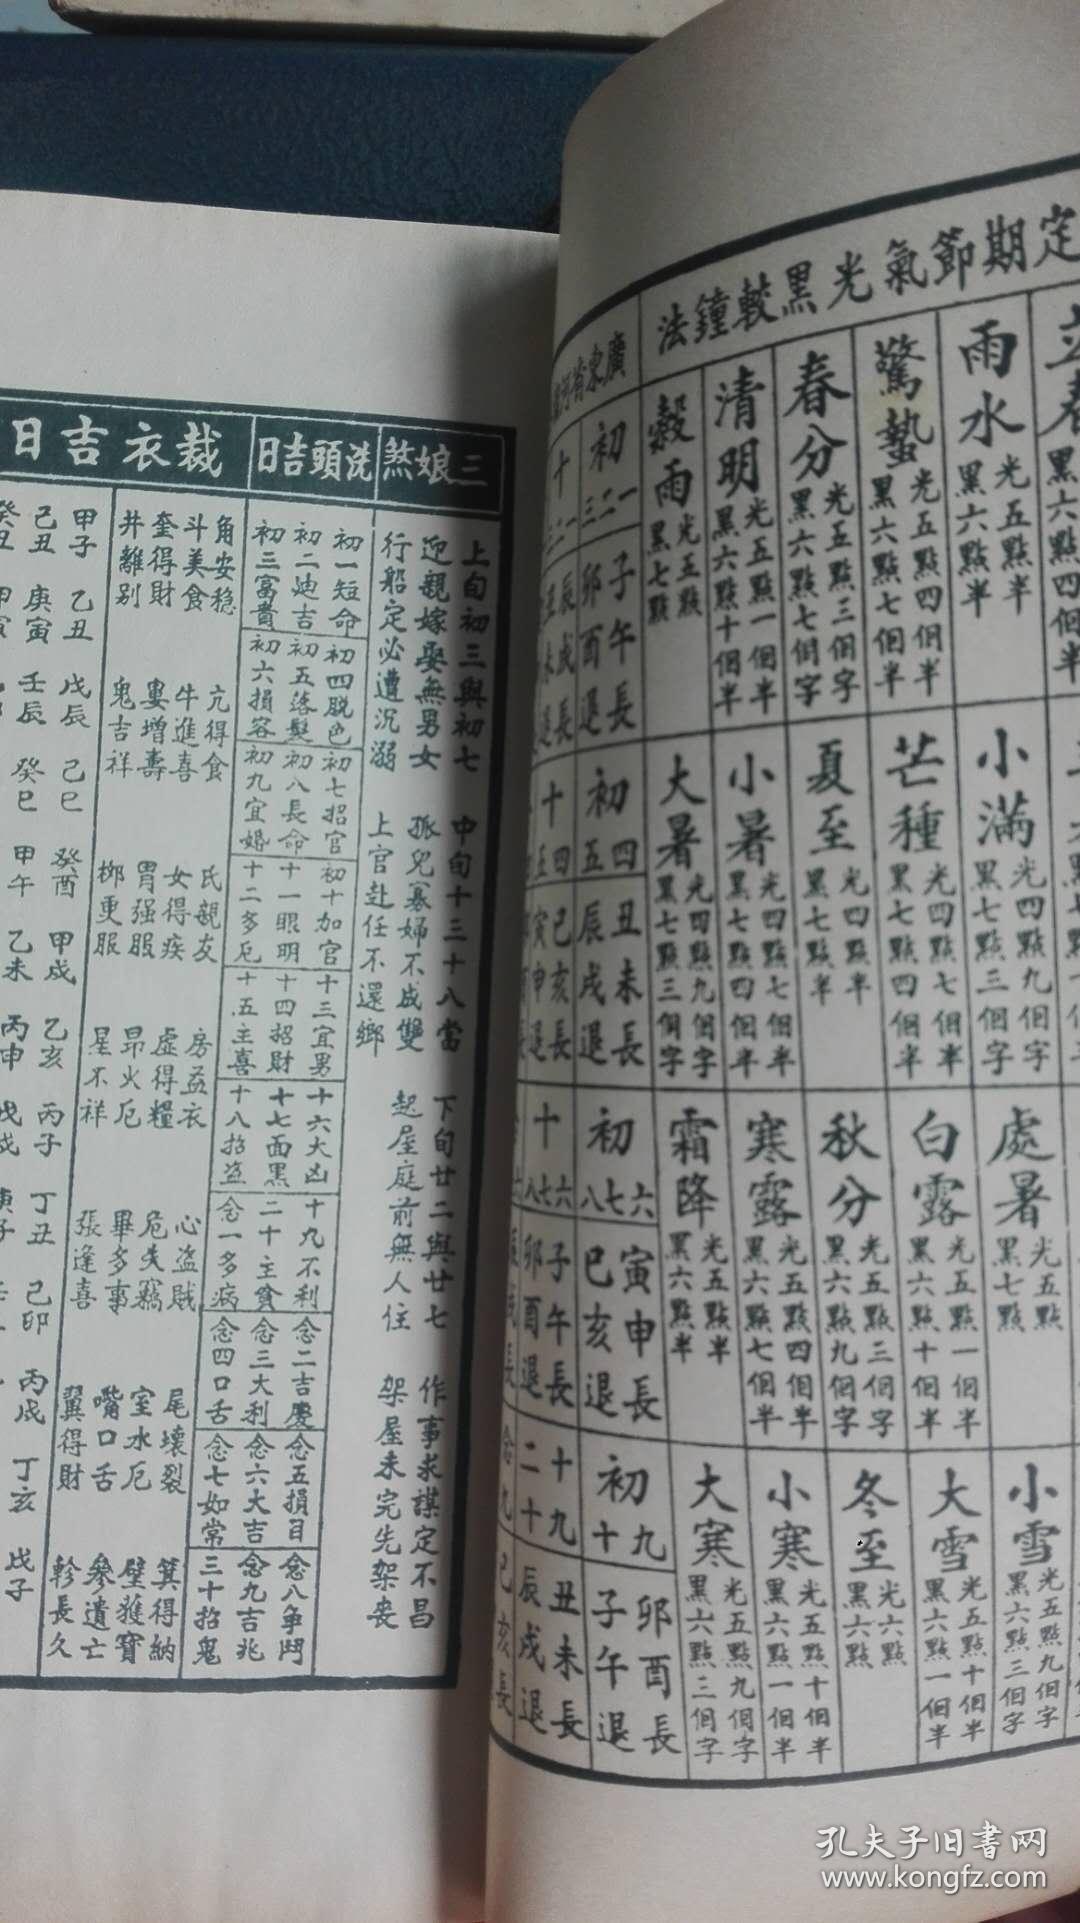 定期節氣光黑較鐘法
雨水
光五點半
黑六點半
驚蟄
光五點四個半
黑六點七個半
春分
光五點三個字
黑六點七個字
清明
光五點一個半
黑六點十個半
穀雨
光五點
黑七點
小滿
光四點九個字
黑七點三個字
芒種
光四點七個半
黑七點四個半
夏至
光四點半
黑七點半
小暑
光四點七個半
黑七點四個半
大暑
光四點九個字
黑七點三個字
處暑
光五點
黑七點
白露
光五點一個半
黑六點十個半
秋分
光五點三個字
黑六點九個字
寒露
光五點四個半
黑六點七個半
霜降
光五點半
黑六點半
小雪
光五點九個字
黑六點三個字
大雪
光五點十個半
黑六點一個半
冬至
光六點
黑六點
小寒
光五點十個半
黑六點一個半
大寒
光五點九個字
黑六點三個字
廣東省河
初一二三
子午長
卯酉退
初四五
丑未長
辰戌退
初六七八
寅申長
巳亥退
初九十
卯酉長
子午退
十四五
巳亥長
寅申退
十六七八
子午長
卯酉退
十九二十
丑未長
辰戌退
三娘煞
上旬初三與初七 中旬十三十八當 下旬廿二與廿七 作事求謀定不昌
迎親嫁娶無男女 孤兒寡婦不成雙 起屋庭前無人住 架屋未完先架喪
行船定必遭沉溺 上官赴任不還鄉
洗頭吉日
初一短命
初二迪吉
初三富貴
初四脱色
初五落髮
初六損容
初七招官
初八長命
初九宜婚
初十加官
十一眼明
十二多厄
十三宜男
十四招財
十五主喜
十六大凶
十七面黑
十八招盜
十九不利
二十主貧
念一多病
念二吉慶
念三大利
念四口舌
念五損目
念六大吉
念七如常
念八爭鬥
念九吉兆
三十招鬼
裁衣吉日
角安稳 亢得食 氐親友 房益衣 心盜賊 尾壞裂 箕得納
斗美食 牛進喜 女得疾 虛得糧 危失竊 室水厄 壁獲寶
奎得財 婁增壽 胃强服 昴火厄 畢多事 嘴口舌 參遺亡
井離別 鬼吉祥 柳更服 星不祥 張逢喜 翼得財 軫長久
甲子 乙丑 戊辰 己巳 癸酉 甲戌 乙亥 丙子 丁丑 己卯 丙戌 丁亥 戊子
己丑 庚寅 壬辰 癸巳 甲午 乙未 丙申 戊戌 庚子
癸丑 甲寅
孔夫子旧書网
www.kongfz.com